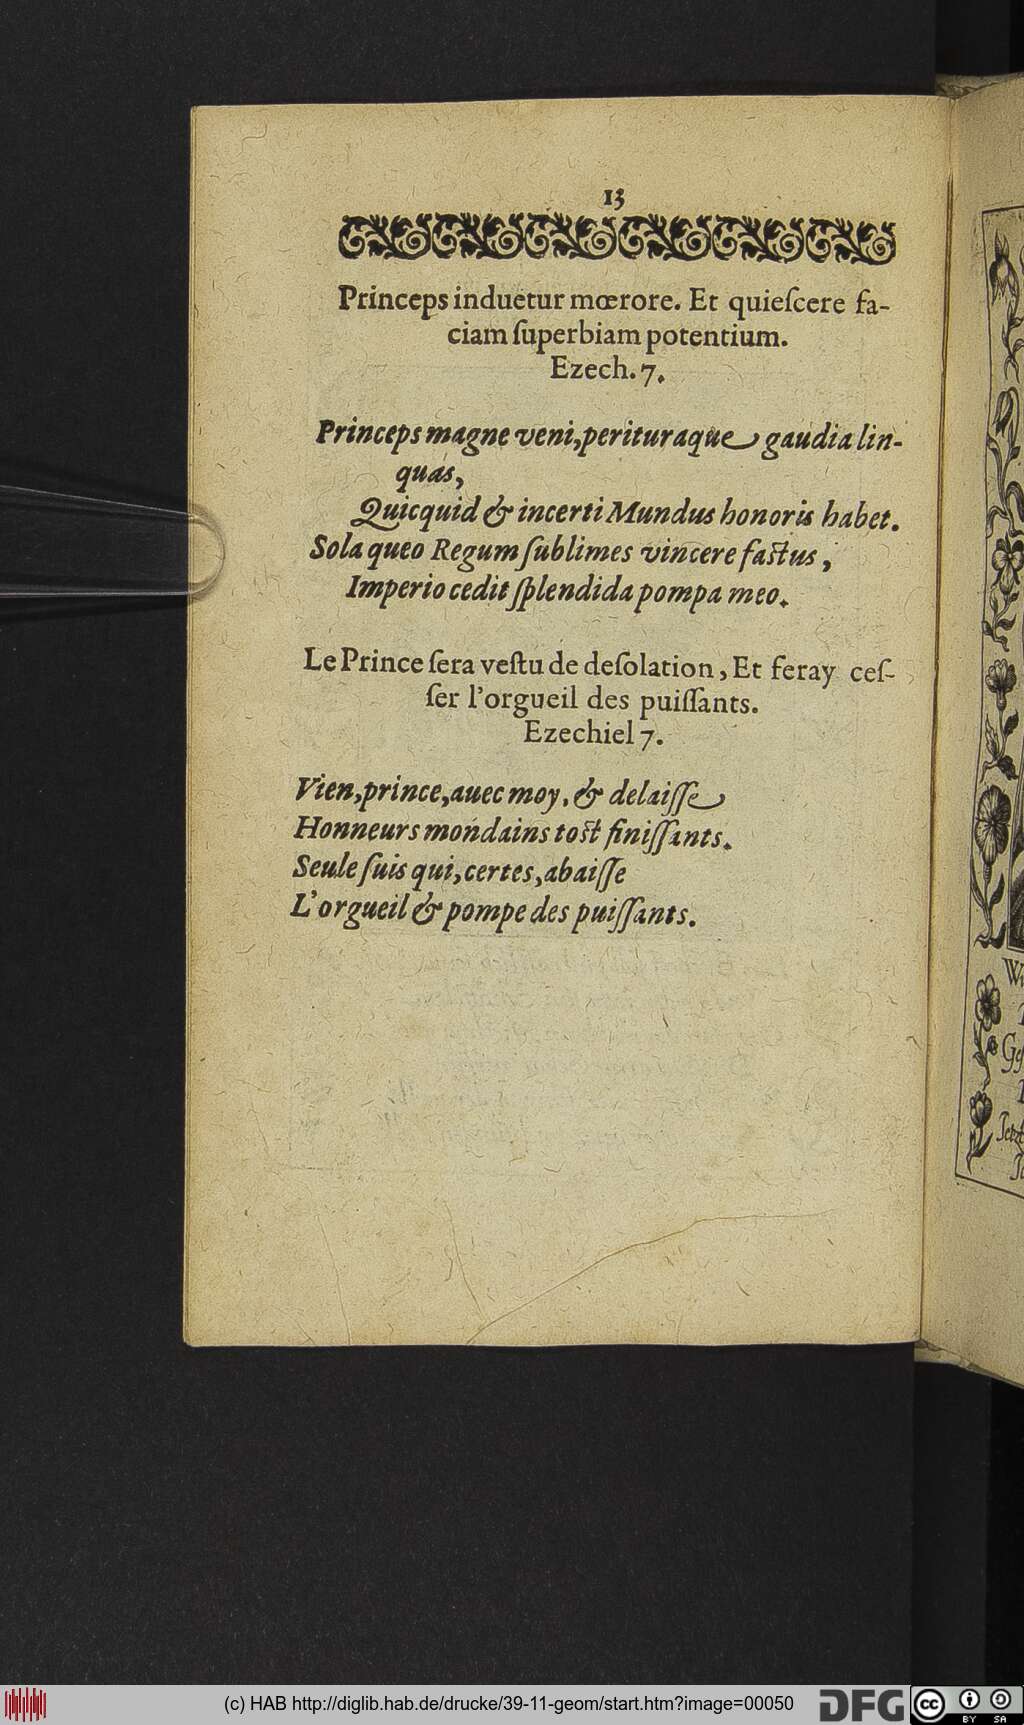 13
Princeps induetur mœrore. Et quieſcere fa-
ciam ſuperbiam potentium.
Ezech. 7.
Princeps magne veni, perituraque gaudia lin-
quas,
Quicquid & incerti Mundus honoris habet.
Sola queo Regum ſublimes vincere faſtus,
Imperio cedit ſplendida pompa meo.
Le Prince ſera veſtu de deſolation, Et feray ceſ-
ſer l'orgueil des puiſſants.
Ezechiel 7.
Vien, prince, auec moy, & delaiſſe
Honneurs mondains toſt finiſſants.
Seule ſuis qui, certes, abaiſſe
L'orgueil & pompe des puiſſants.
(c) HAB http://diglib.hab.de/drucke/39-11-geom/start.htm?image=00050
DFG
cc BY SA